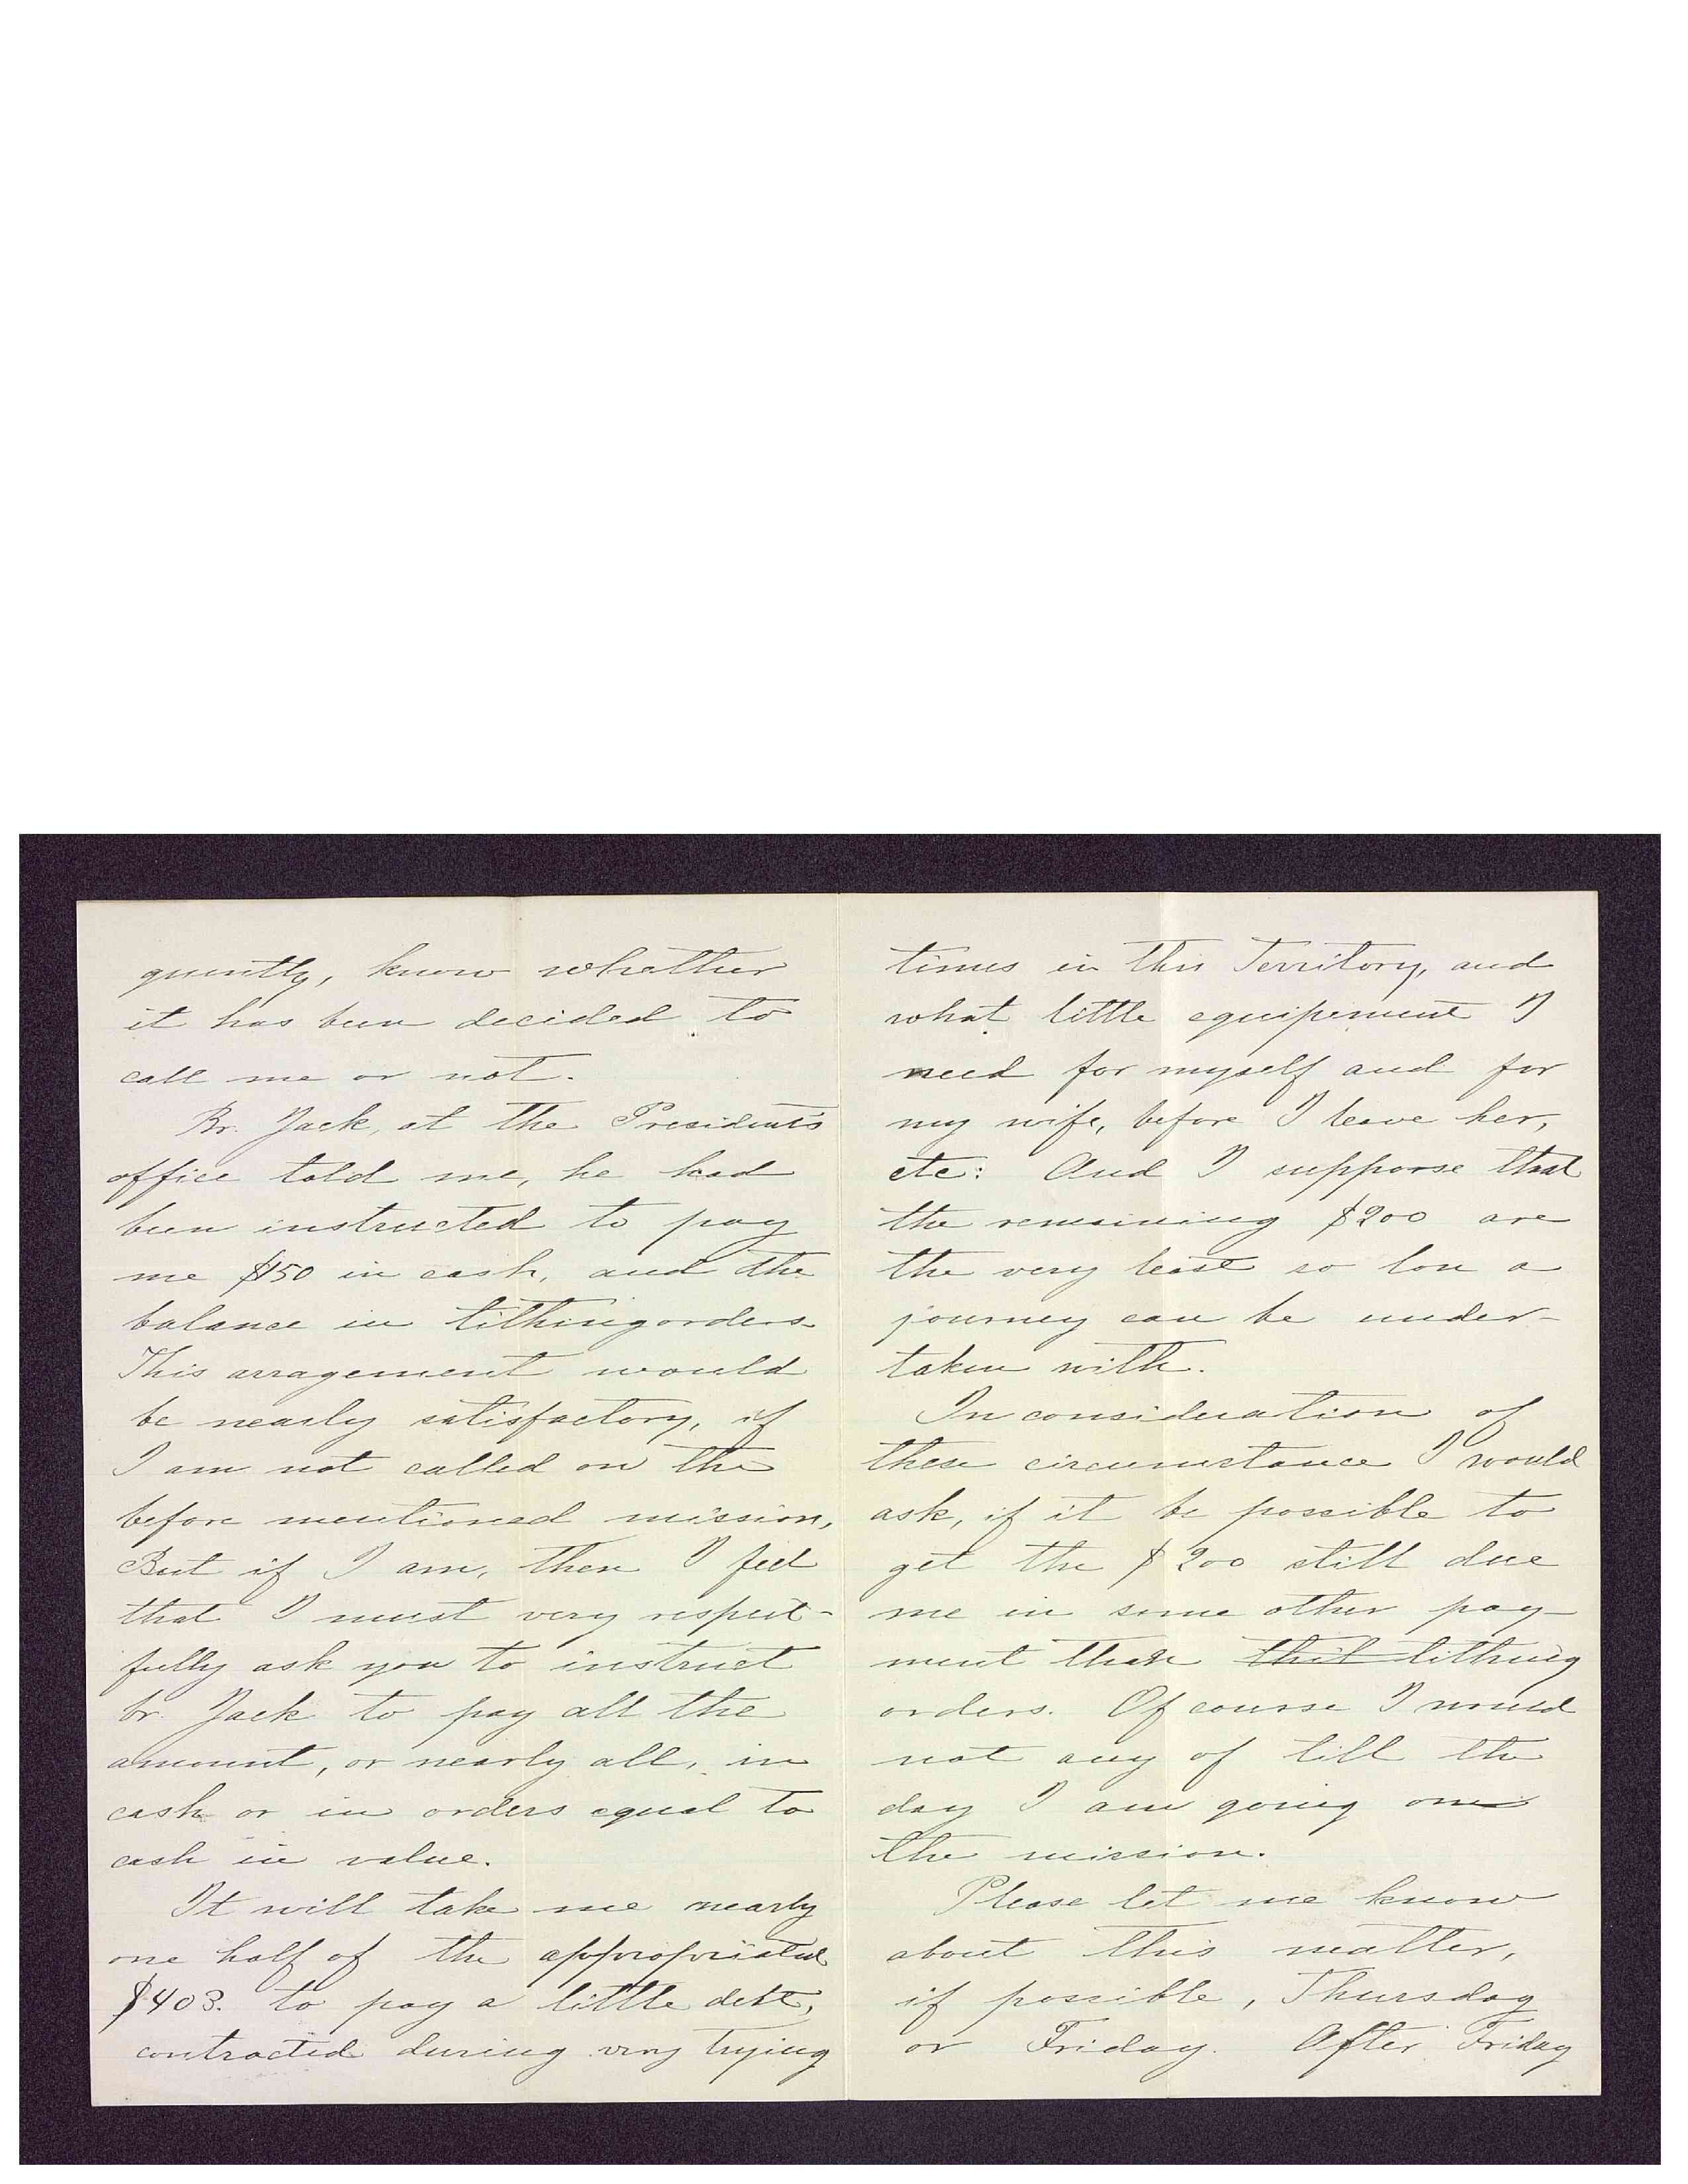 quently, know whether
it has been decided to
call me or not.
Br. Jack, at the President's
office told me, he had
been instructed to pay
me $150 in cash, and the
balance in tithingorders.
This arragement would
be nearly satisfactory, if
I am not called on the
before mentioned mission,
But if I am, then I feel
that I must very respect-
fully ask you to instruct
br. Jack to pay all the
amount, or nearly all, in
cash or in orders equal to
cash in value.
It will take me nearly
one half of the appropriated
$403. to pay a little debt,
contracted during very trying
times in this Territory, and
what little equipement I
need for myself and for
my wife, before I leave her,
etc: And I supporse that
the remaining $200 are
the very least so lon a
journey can be under-
taken with.
In consideration of
these circumstance I would
ask, if it be possible to
get the $200 still due
me in some other pay-
ment than that tithing
orders. Of course I would
not any of till the
day I am going on
the mission.
Please let me know
about this matter,
if possible, Thursday
or Friday. After Friday